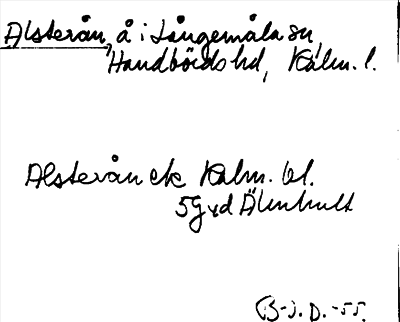 Alsterån, å i Långemåla sn,
Handbörds hd, Kalm. l.
Alsterån ek Kalm. bl.
5G vd Älmhult
B-J. D. -55.